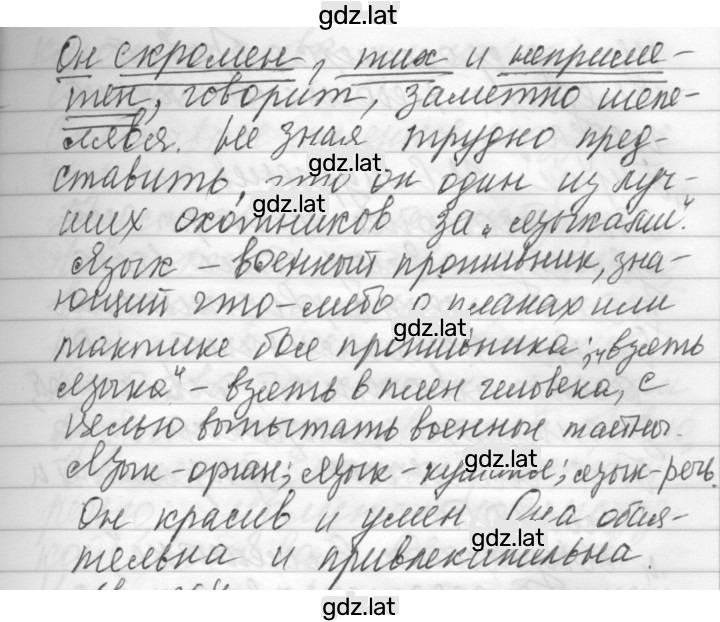 gdz.lat
Он скромен, тих и неприме-
тен, говорит, заметно шепе-
лявя. Не зная трудно пред-
gdz.lat
ставить, что он один из луч-
gdz.lat
ших охотников за „язычками".
Язык – военный противник, зна-
ющий что-либо о планах или
gdz.lat
тактике боя противника; „взять
языка" – взять в плен человека, с
целью выпытать военные тайны.
Язык – орган; язык – кушанье; язык – речь.
gdz.lat
Он красив и умен. Она обая-
gdz.lat
тельна и привлекательна.
gdz.lat